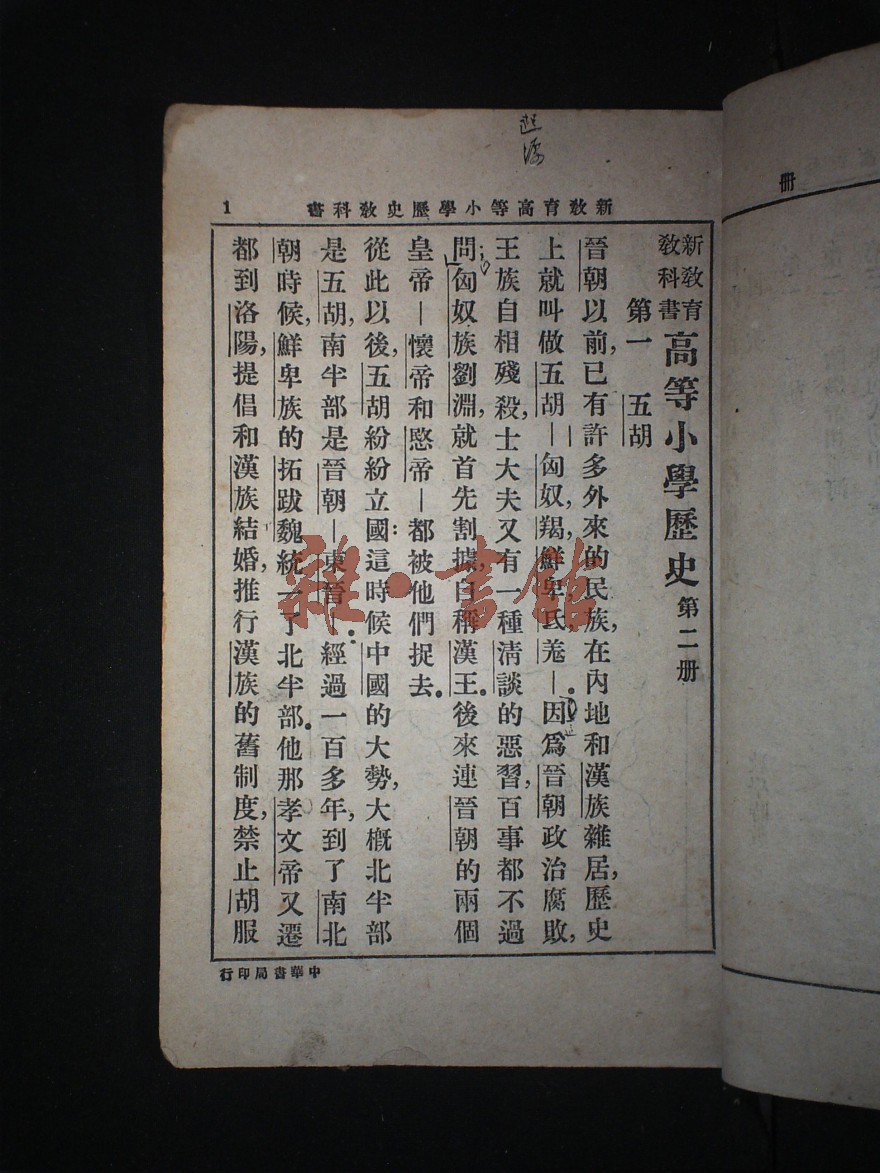 新教育高等小學歷史教科書
1
新教育
教科書
高等小學歷史 第二册
第一 五胡
晉朝以前,已有許多外來的民族,在內地和漢族雜居,歷史
上就叫做五胡—匈奴,羯,鮮卑,氐,羌—因爲晉朝政治腐敗,
王族自相殘殺,士大夫又有一種清談的惡習,百事都不過
問;匈奴族劉淵,就首先割據,自稱漢王。後來連晉朝的兩個
皇帝—懷帝和愍帝—都被他們捉去。
從此以後,五胡紛紛立國:這時候中國的大勢,大概北半部
是五胡,南半部是晉朝—東晉。經過一百多年,到了南北
朝時候,鮮卑族的拓跋魏統一了北半部。他那孝文帝又遷
都到洛陽,提倡和漢族結婚,推行漢族的舊制度,禁止胡服
中華書局印行
册
雜·書館